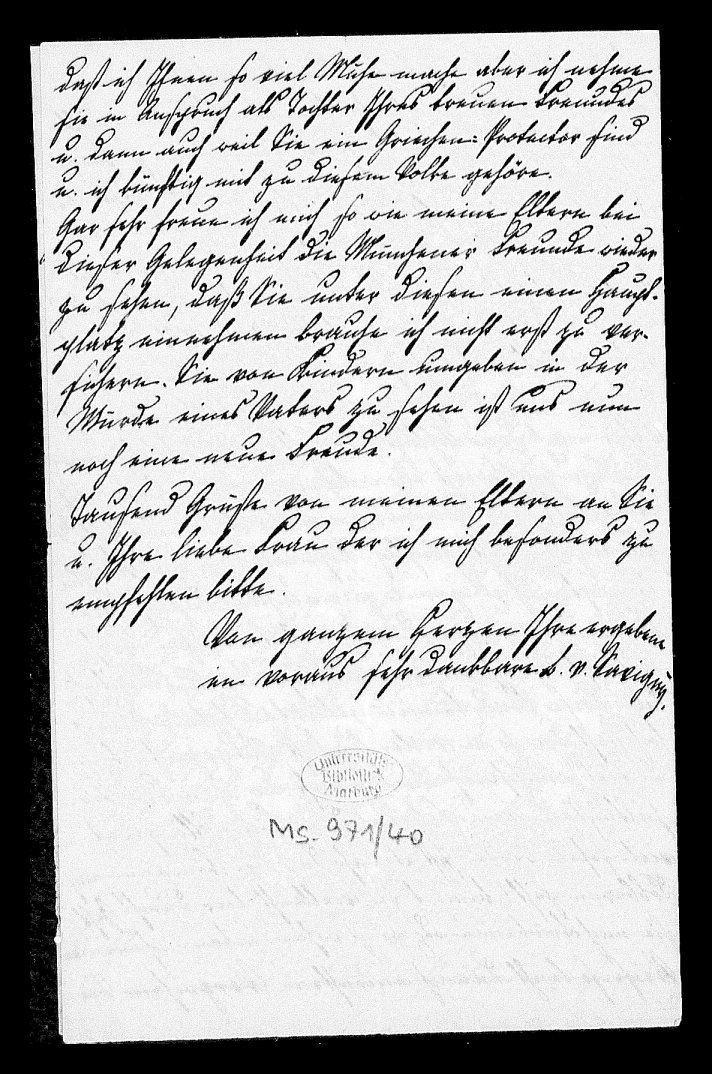 daß ich Ihnen so viel Mühe mache aber ich nehme
sie in Anspruch als Tochter Ihres treuen Freundes
u. dann auch weil Sie ein Griechen-Protector sind
u. ich künftig mit zu diesem Volke gehöre.
Gar sehr freue ich mich so wie meine Eltern bei
dieser Gelegenheit die Münchener Freunde wieder
zu sehen, daß Sie unter diesen einen Haupt-
platz einnehmen brauche ich nicht erst zu ver-
sichern. Sie von Kindern umgeben in der
Würde eines Vaters zu sehen ist uns nun
noch eine neue Freude.
Tausend Grüße von meinen Eltern an Sie
u. Ihre liebe Frau der ich mich besonders zu
empfehlen bitte.
Von ganzem Herzen Ihre ergebene
im voraus sehr dankbare B. v. Savigny.
Universitäts
Bibliothek
Marburg
Ms. 971/40